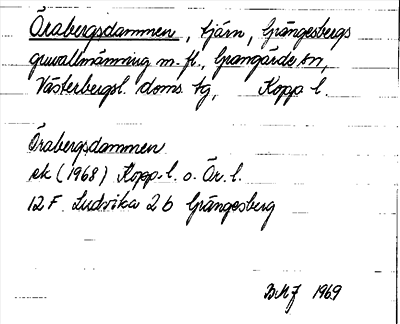 Örabergsdammen, tjärn, Grängesbergs
gruvallmänning m. fl., Grangärde sn,
Västerbergsl. doms tg, Kopp. l.
Örabergsdammen
ek (1968) Kopp. l. o. Ör. l.
12 F Ludvika 2 b Grängesberg
BMJ 1969